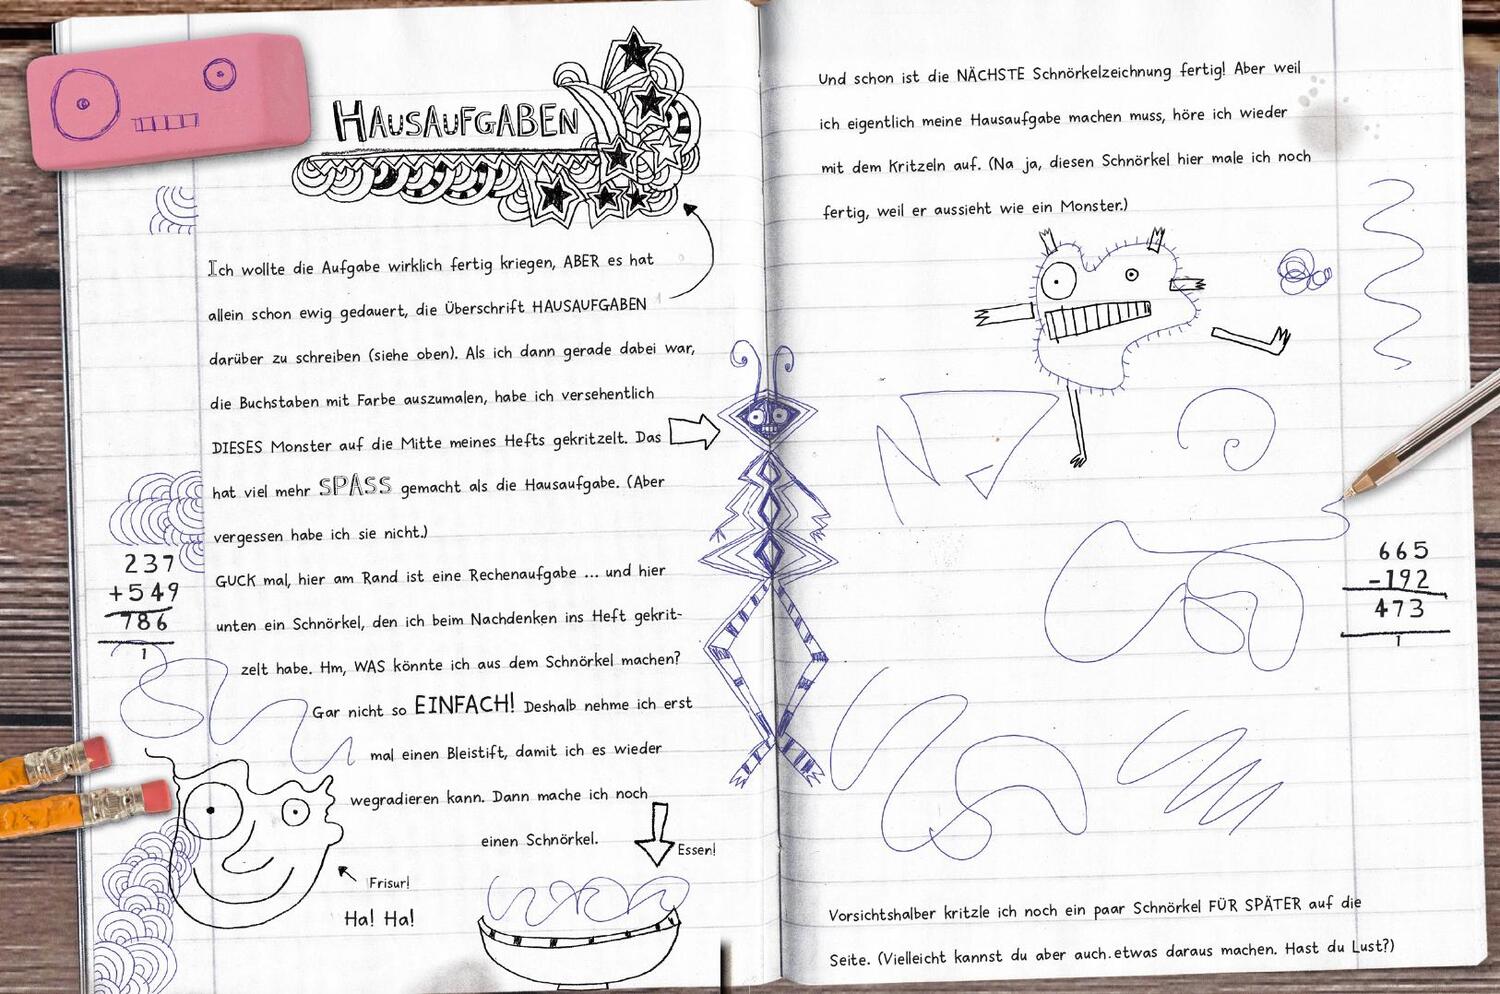 HAUSAUFGABEN
Ich wollte die Aufgabe wirklich fertig kriegen, ABER es hat
allein schon ewig gedauert, die Überschrift HAUSAUFGABEN
darüber zu schreiben (siehe oben). Als ich dann gerade dabei war,
die Buchstaben mit Farbe auszumalen, habe ich versehentlich
DIESES Monster auf die Mitte meines Hefts gekritzelt. Das
hat viel mehr SPASS gemacht als die Hausaufgabe. (Aber
vergessen habe ich sie nicht.)
GUCK mal, hier am Rand ist eine Rechenaufgabe ... und hier
unten ein Schnörkel, den ich beim Nachdenken ins Heft gekrit-
zelt habe. Hm, WAS könnte ich aus dem Schnörkel machen?
Gar nicht so EINFACH! Deshalb nehme ich erst
mal einen Bleistift, damit ich es wieder
wegradieren kann. Dann mache ich noch
einen Schnörkel.
237
+549
786
1
Frisur!
Ha! Ha!
Essen!
Und schon ist die NÄCHSTE Schnörkelzeichnung fertig! Aber weil
ich eigentlich meine Hausaufgabe machen muss, höre ich wieder
mit dem Kritzeln auf. (Na ja, diesen Schnörkel hier male ich noch
fertig, weil er aussieht wie ein Monster.)
665
-192
473
1
Vorsichtshalber kritzle ich noch ein paar Schnörkel FÜR SPÄTER auf die
Seite. (Vielleicht kannst du aber auch etwas daraus machen. Hast du Lust?)